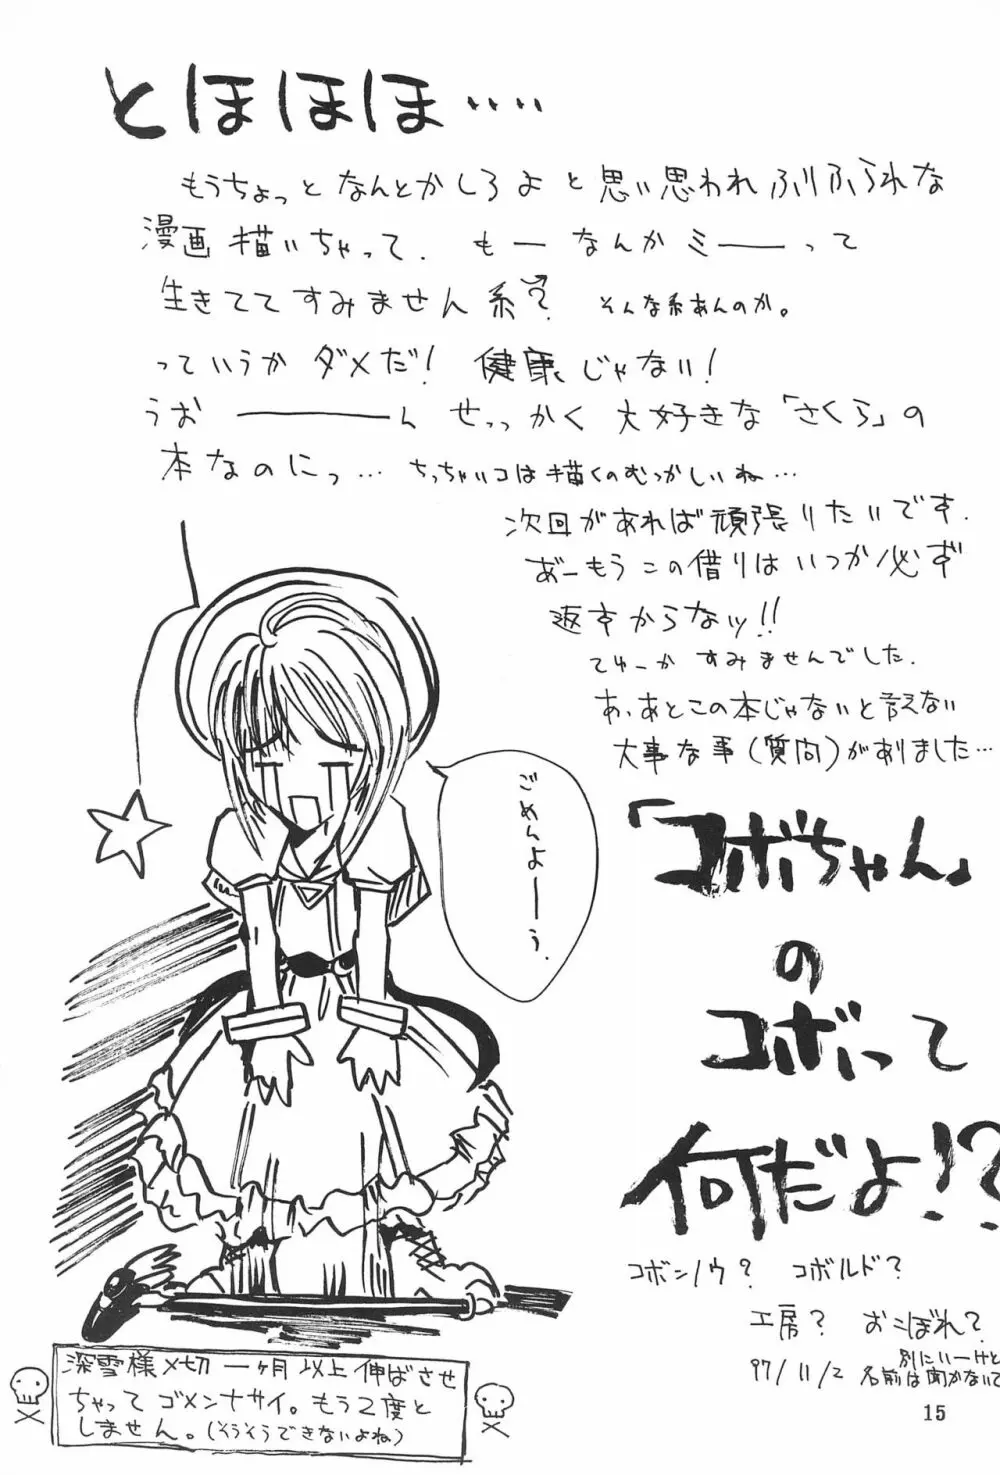 とほほほ‥‥
もうちょっとなんとかしろよと思い思われふりふられな
漫画描いちゃって. もーなんかミーーって
生きててすみません系? そんな系あんのか。
っていうかダメだ! 健康じゃない!
うおーーーーん せっっかく大好きな「さくら」の
本なのにっ… ちっちゃいコは描くのむつかしいね…
次回があれば頑張りたいです.
あーもうこの借りはいつか必ず
返すからなッ!!
てゆーかすみませんでした.
あ、あとこの本じゃないと言えない
大事な事(質問)がありました…
ごめんよーーぅ.
「コボちゃん」
の
コボって
何だよ!?
コボンノウ? コボルド?
工房? おこぼれ?
別にいーけど
97/11/2 名前は聞かないで
深雪様〆切一ヶ月以上伸ばさせ
ちゃってゴメンナサイ。もう2度と
しません。(そうそうできないよね)
15